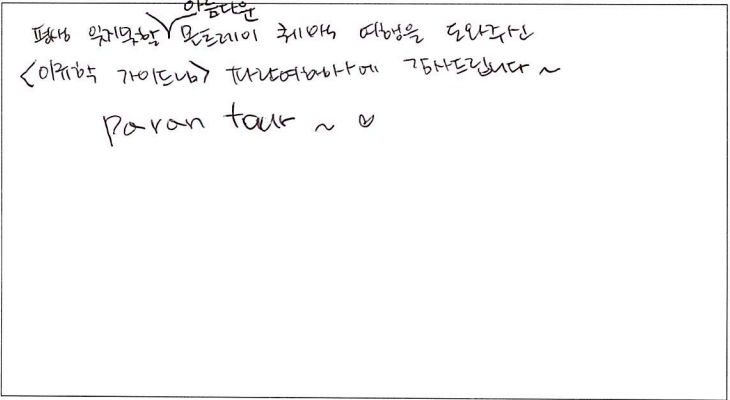 평생 잊지못할 아름다운 몬트레이 퀘백 여행을 도와주신
<이귀학 가이드님> 파란여행사에 감사드립니다~
Paran tour ~ ♡